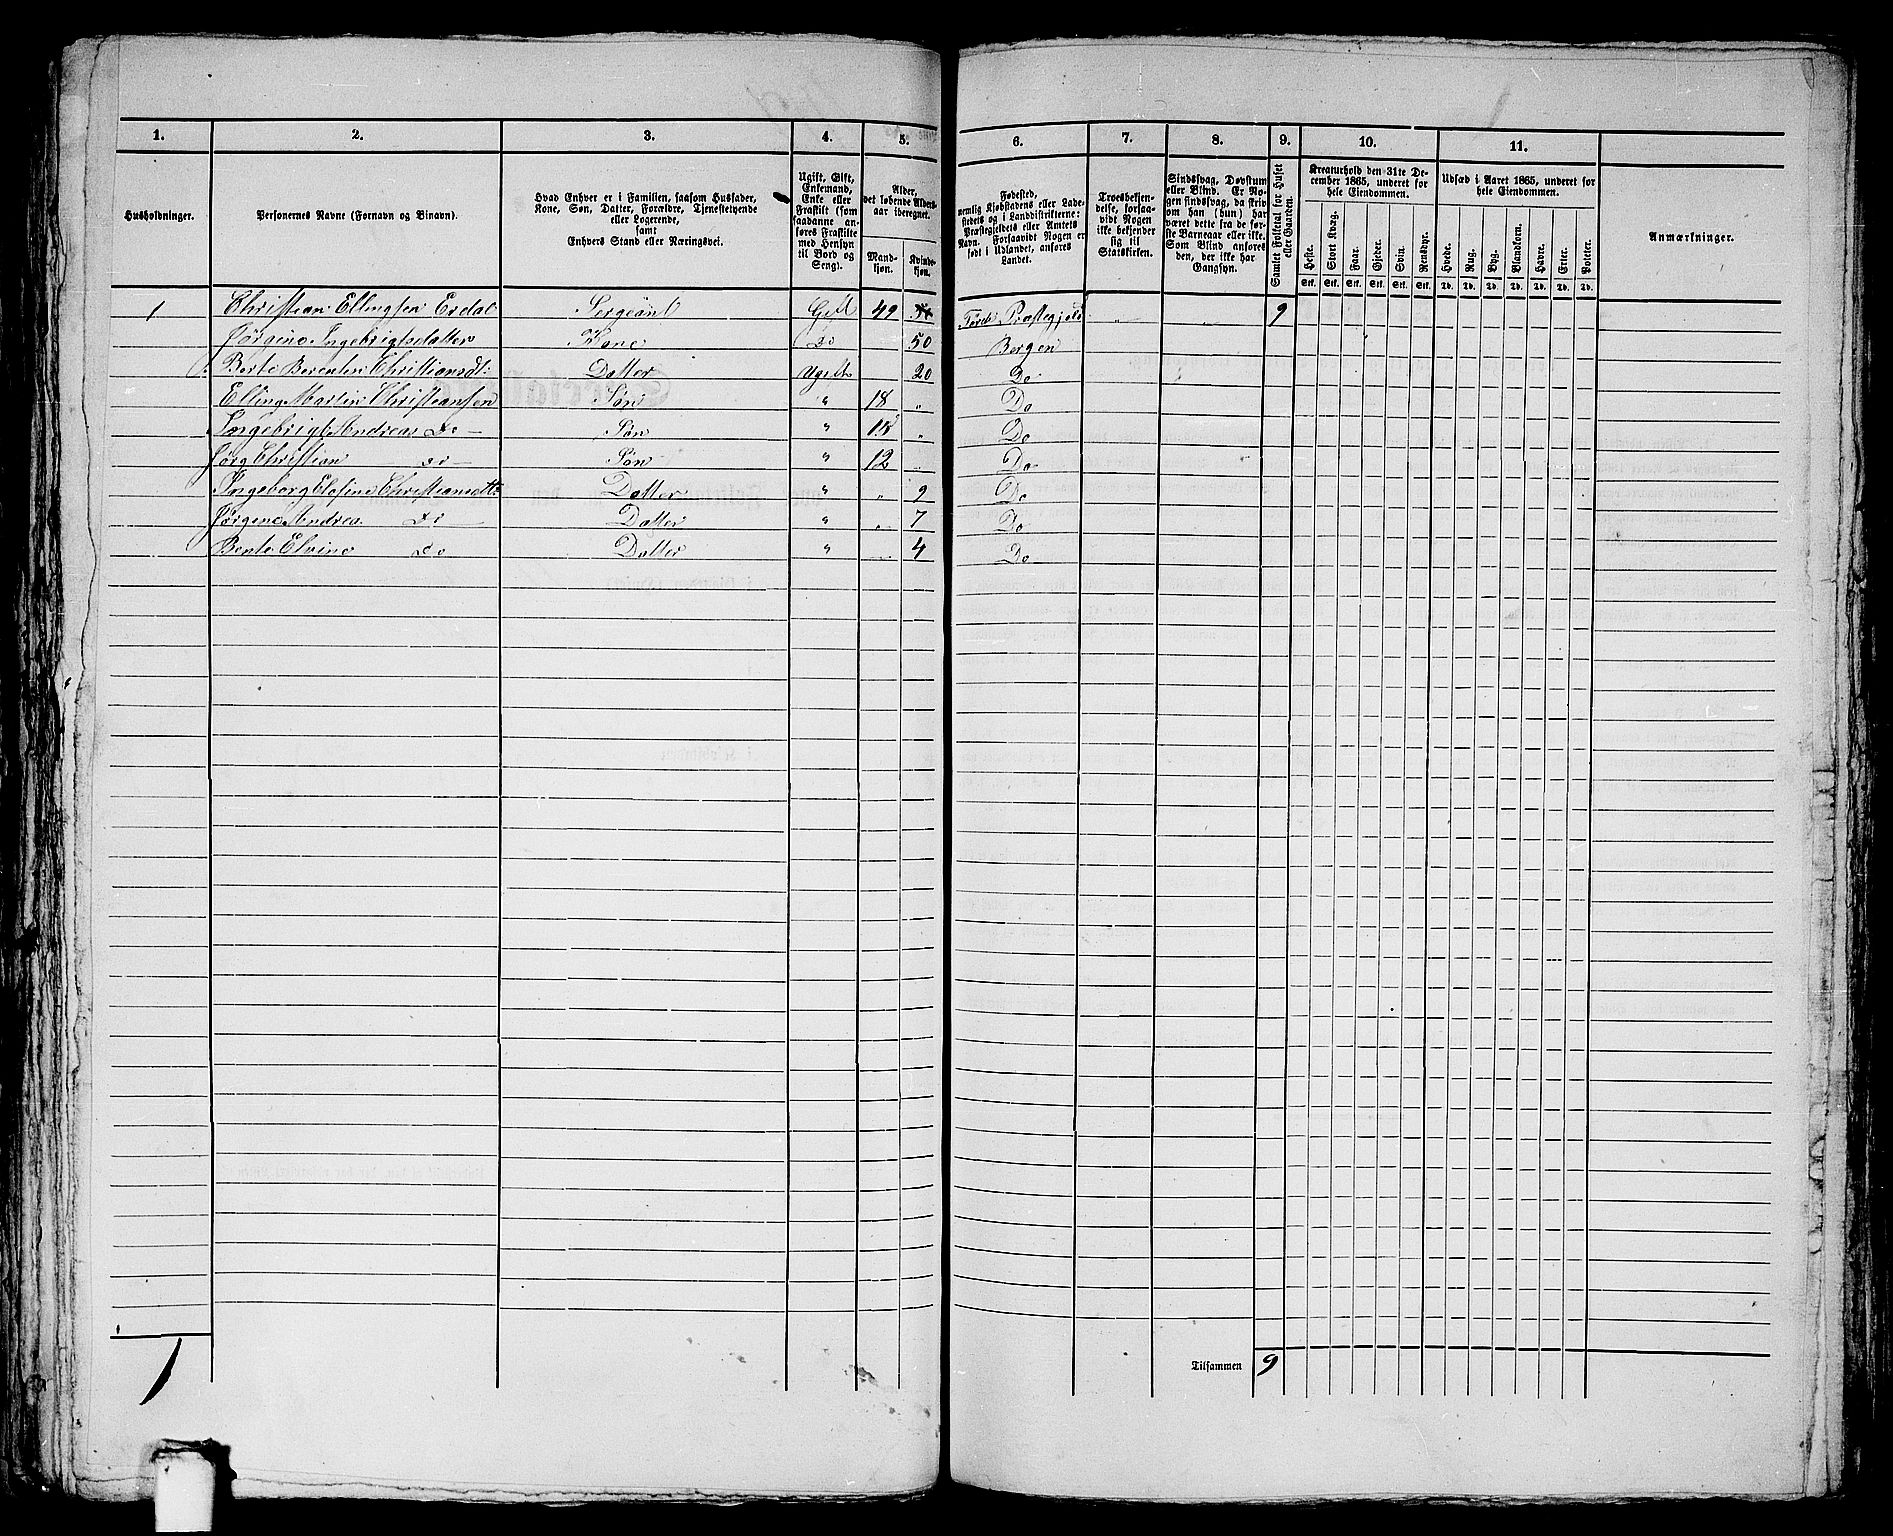 1. 2. 3. 4. 5. 6. 7. 8. 9. 10. 11.
Husholdninger.
Personernes Navne (Fornavn og Binavn).
Hvad Enhver er i Familien, saasom Husfader,
Kone, Søn, Datter, Forældre, Tjenestetyende
eller Logerende,
samt
Enhvers Stand eller Næringsvei.
Ugift, Gift,
Enkemand,
Enke eller
Fraskilt (som
saadanne an-
føres Fraskilte
med Hensyn
til Bord og
Seng).
Alder,
det løbende Alders-
aar iberegnet.
Mand-
kjøn.
Kvinde-
kjøn.
Fødested,
nemlig Kjøbstadens eller Lade-
stedets og i Landdistrikterne:
Præstegjeldets eller Amtets
Navn. Forsaavidt Nogen er
født i Udlandet, anføres
Landet.
Troesbekjen-
delse, forsaa-
vidt Nogen
ikke bekjender
sig til
Statskirken.
Sindssvag, Døvstum
eller Blind. Er No-
gen sindssvag, da skriv
om han (hun) har
været dette fra de før-
ste Barneaar eller ikke.
Som Blind anføres
den, der ikke har
Gangsyn.
Samlet Folketal for Huset
eller Gaarden.
Kreaturhold den 31te De-
cember 1865, underet for
hele Eiendommen.
Heste. Stort Kvæg. Faar. Gjeder. Svin. Rensdyr.
Stk. Stk. Stk. Stk. Stk. Stk.
Udsæd i Aaret 1865, underet for
hele Eiendommen.
Hvede. Rug. Byg. Blandkorn. Havre. Erter. Poteter.
Td. Td. Td. Td. Td. Td. Td.
Anmærkninger.
1 Christian Ellingsen Erdal Sergeant Gift 49 Førde Præstegjeld " " 9
Jørgine Ingebrigtsdatter Kone Do 50 Bergen
Berte Berentine Christiansdt: Datter Ugift 20 Do
Elling Martin Christiansen Søn " 18 " Do
Ingebrigt Andreas Do Søn " 15 " Do
Jørg Christian Do Søn " 12 " Do
Ingeborg Elefine Christiansdtt: Datter " " 9 Do
Jørgine Andrea Do Datter " " 7 Do
Bente Elvine Do Datter " " 4 Do
1
Tilsammen 9